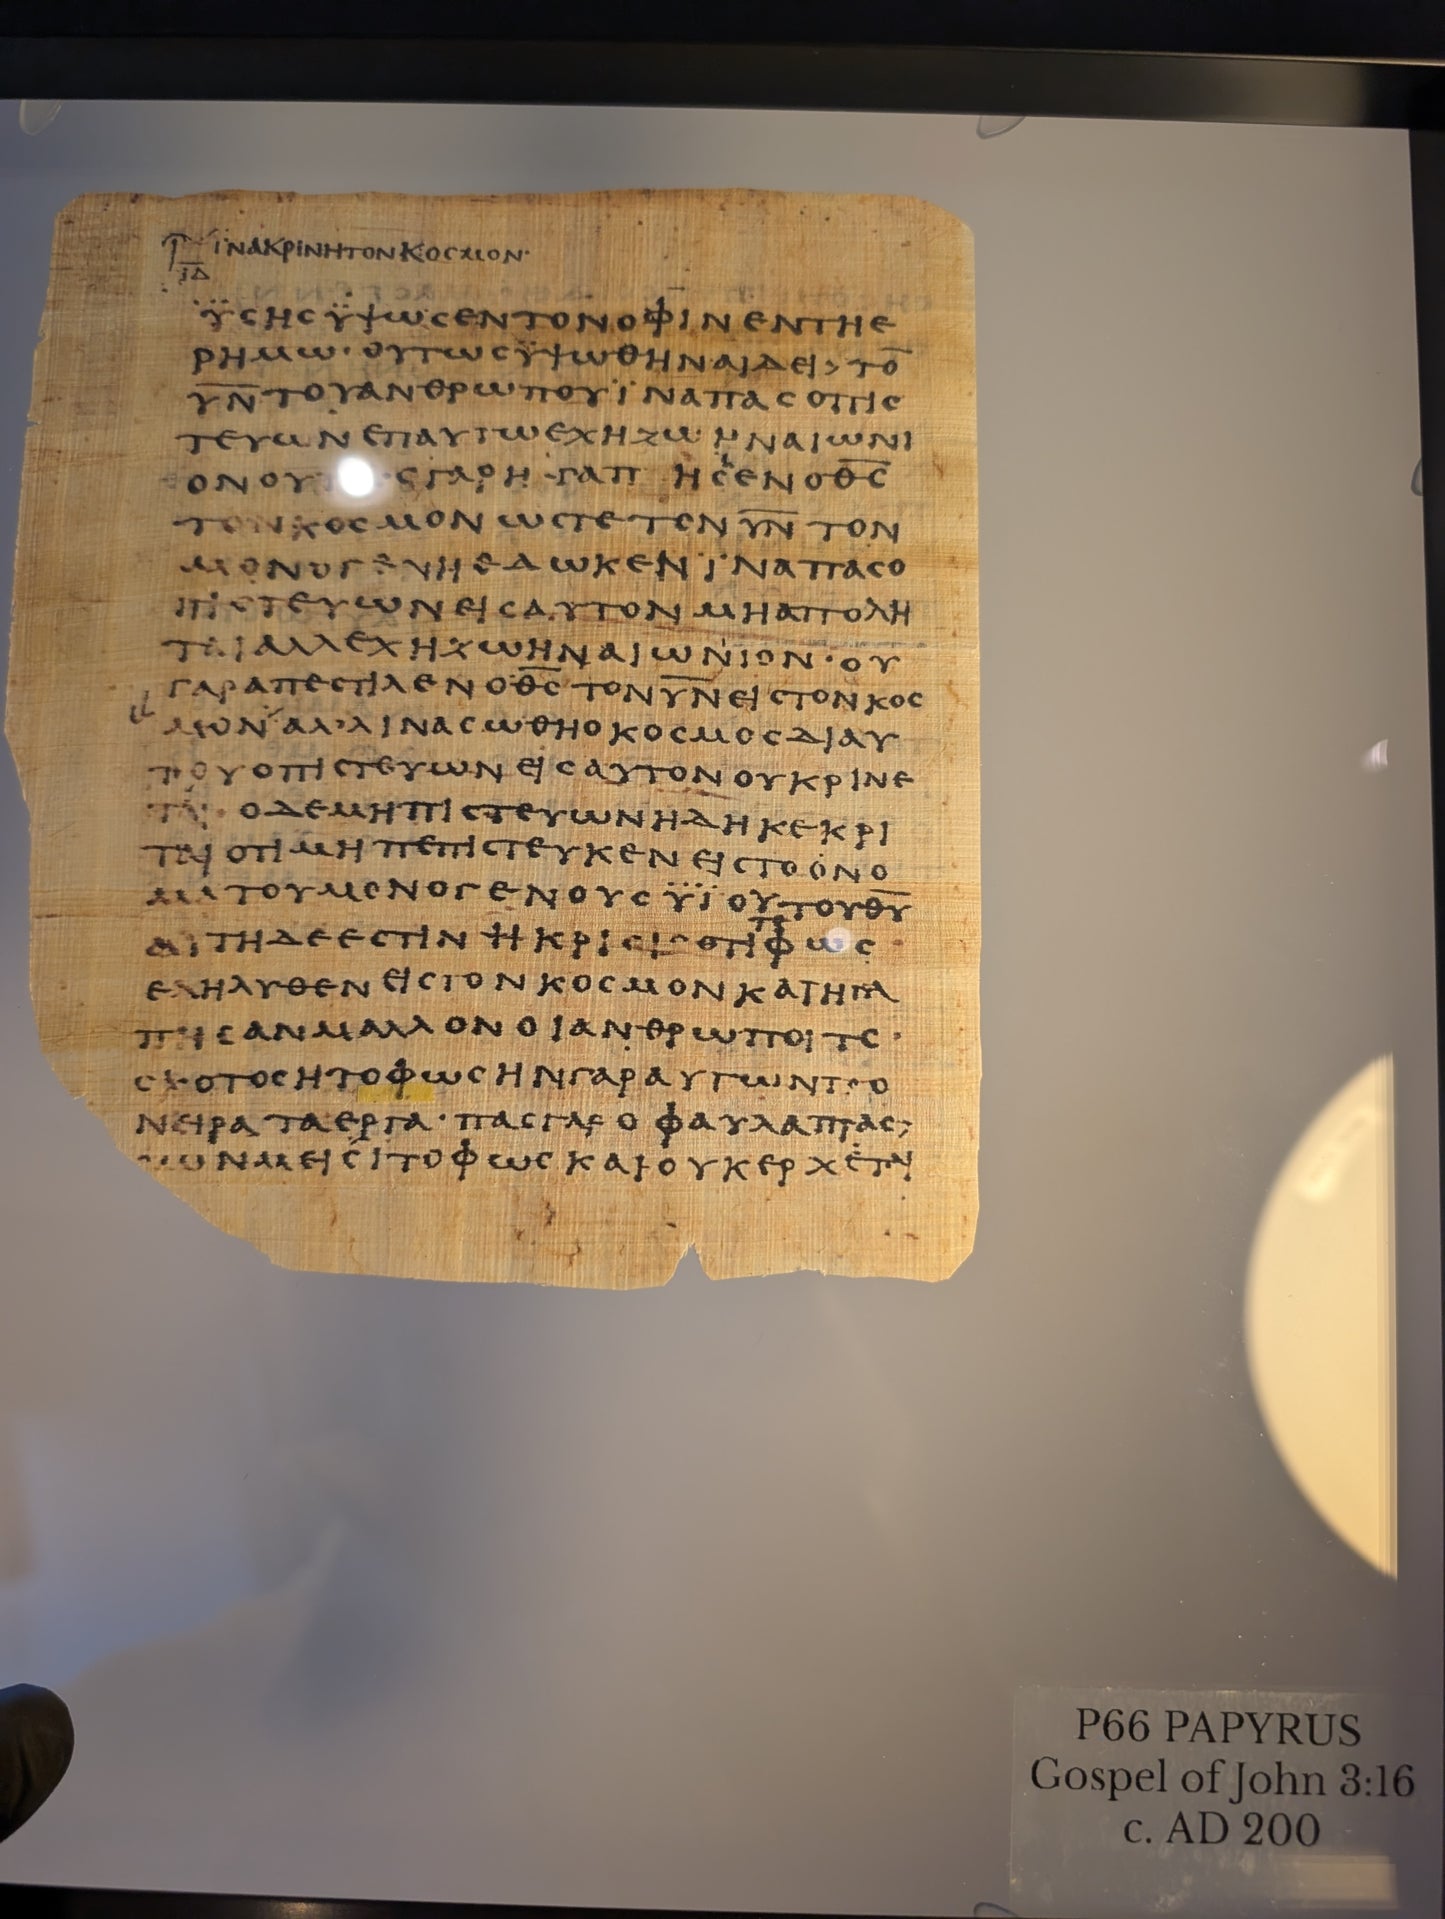 ΙΔ
ΪΝΑΚΡΙΝΗΤΟΝΚΟСΜΟΝ·
ΫСΗСΫΨΩСΕΝΤΟΝΟΦΙΝΕΝΤΗΕ
ΡΗΜΩ·ΟΥΤΩСΫΨΩΘΗΝΑΙΔΕΙ>ΤΟ̅
Υ̅Ν̅ΤΟΥΑΝΘΡΩΠΟΥΪΝΑΠΑСΟΠΙС
ΤΕΥΩΝΕΠΑΥΤΩΕΧΗΖΩΗΝΑΙΩΝΙ
ΟΝΟΥ СΓΑΡΗ ΓΑΠ ΗСΕΝΟΘ̅С̅
ΤΟΝΚΟСΜΟΝΩСΤΕΤΟΝΥ̅Ν̅ΤΟΝ
ΜΟΝΟΓΕΝΗΕΔΩΚΕΝΪΝΑΠΑСΟ
ΠΙСΤΕΥΩΝΕΙСΑΥΤΟΝΜΗΑΠΟΛΗ
ΤΑΙΑΛΛΕΧΗΖΩΗΝΑΙΩΝΙΟΝ·ΟΥ
ΓΑΡΑΠΕСΤΙΛΕΝΟΘ̅С̅ΤΟΝΥ̅Ν̅ΕΙСΤΟΝΚΟС
ΜΟΝΑΛ᾽ΛΙΝΑСΩΘΗΟΚΟСΜΟСΔΙΑΥ
ΤΟΥΟΠΙСΤΕΥΩΝΕΙСΑΥΤΟΝΟΥΚΡΙΝΕ
ΤΑΙ ΟΔΕΜΗΠΙСΤΕΥΩΝΗΔΗΚΕΚΡΙ
ΤΑΙΟΤΙΜΗΠΕΠΙСΤΕΥΚΕΝΕΙСΤΟΟΝΟ
ΜΑΤΟΥΜΟΝΟΓΕΝΟΥСΫΪΟΥΤΟΥΘ̅Υ̅
ΑΥΤΗΔΕΕСΤΙΝΗΚΡΙСΙСΟΤΙΦΩС
ΕΛΗΛΥΘΕΝΕΙСΤΟΝΚΟСΜΟΝΚΑΙΗΓΑ
ΠΗСΑΝΜΑΛΛΟΝΟΙΑΝΘΡΩΠΟΙΤΟ
СΚΟΤΟСΗΤΟΦΩСΗΝΓΑΡΑΥΤΩΝΠΟ
ΝΗΡΑΤΑΕΡΓΑ·ΠΑСΓΑΡΟΦΑΥΛΑΠΡΑС>
СΩΝΜΕΙСΙΤΟΦΩСΚΑΙΟΥΚΕΡΧΕΤΑΙ
P66 PAPYRUS
Gospel of John 3:16
c. AD 200